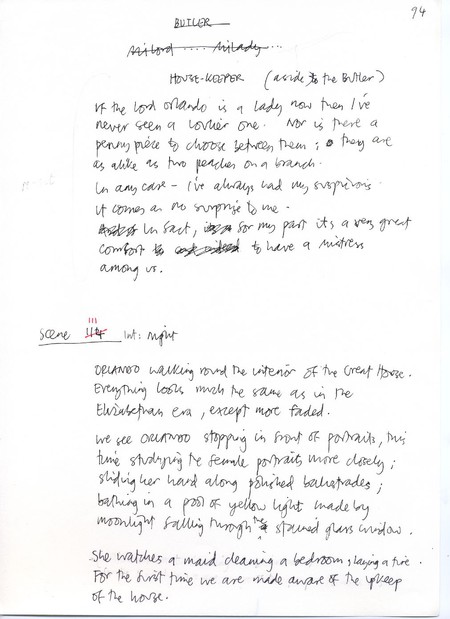 94
BUTLER
Milord .... Milady ...
HOUSE-KEEPER (aside to the Butler)
If the Lord Orlando is a Lady now then I've
never seen a lovlier one. Nor is there a
penny piece to choose between them; they are
as alike as two peaches on a branch.
In any case – I've always had my suspicions.
It comes as no surprise to me.
In fact, for my part its a very great
comfort to have a mistress
among us.
Scene 111 Int: night
ORLANDO walking round the interior of the Great House.
Everything looks much the same as in the
Elizabethan era, except more faded.
We see ORLANDO stopping in front of portraits, this
time studying the female portraits more closely;
sliding her hand along polished balustrades;
bathing in a pool of yellow light made by
moonlight falling through the stained glass window.
She watches a maid cleaning a bedroom, laying a fire.
For the first time we are made aware of the upkeep
of the house.